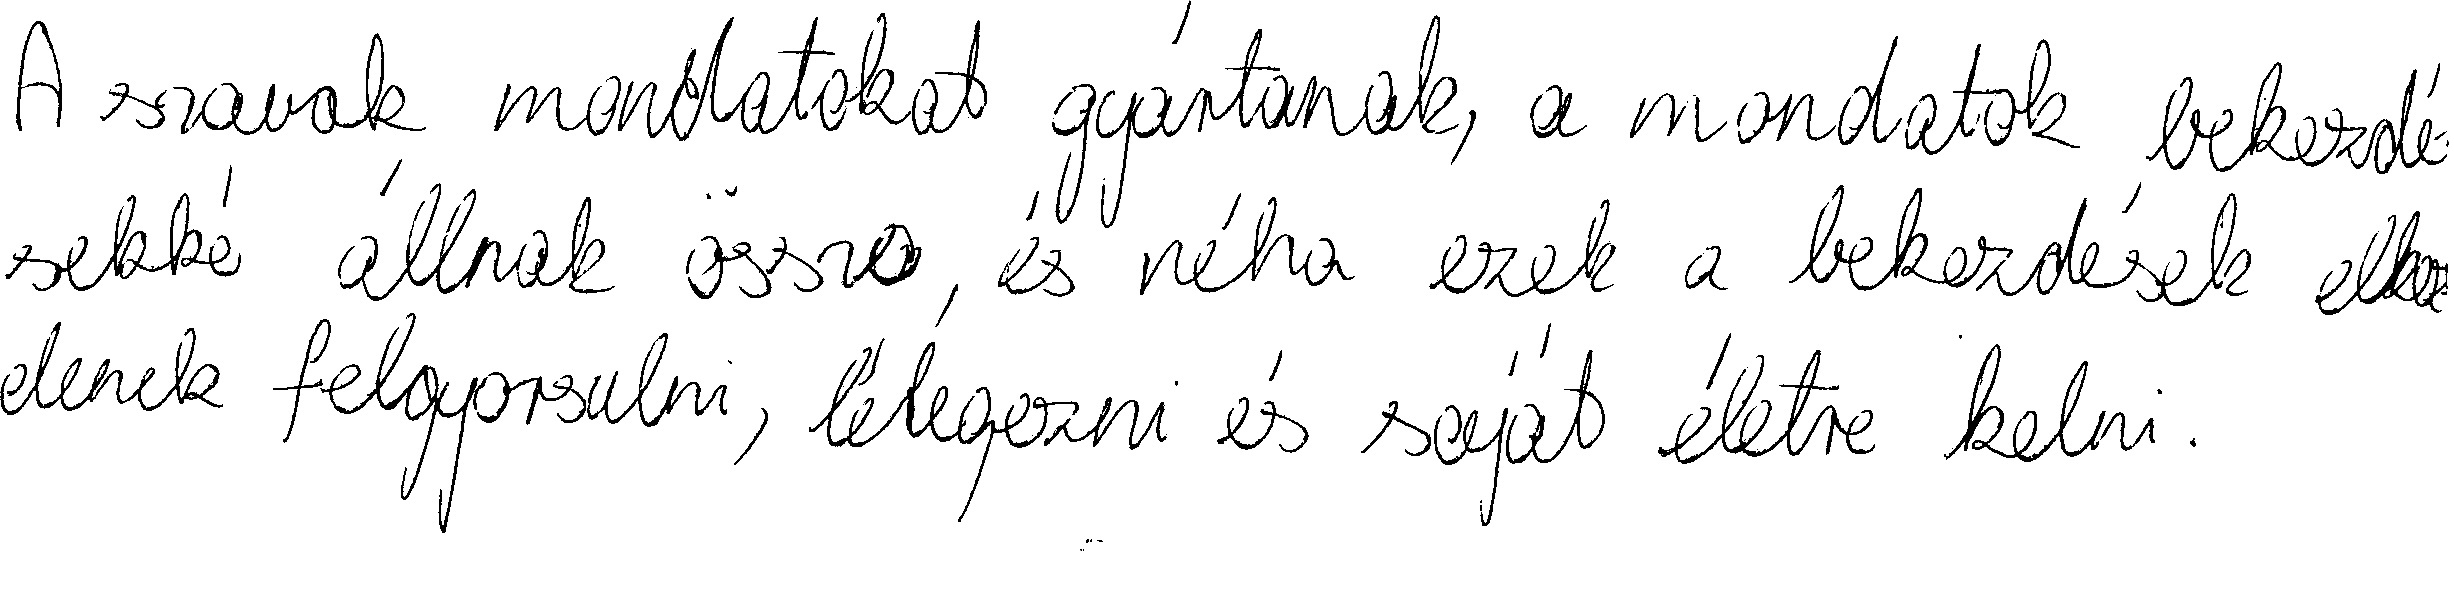 A szavak mondatokat gyártanak, a mondatok bekezdé-
sekké állnak össze, és néha ezek a bekezdések elkez
denek felgyorsulni, lélegezni és saját életre kelni.